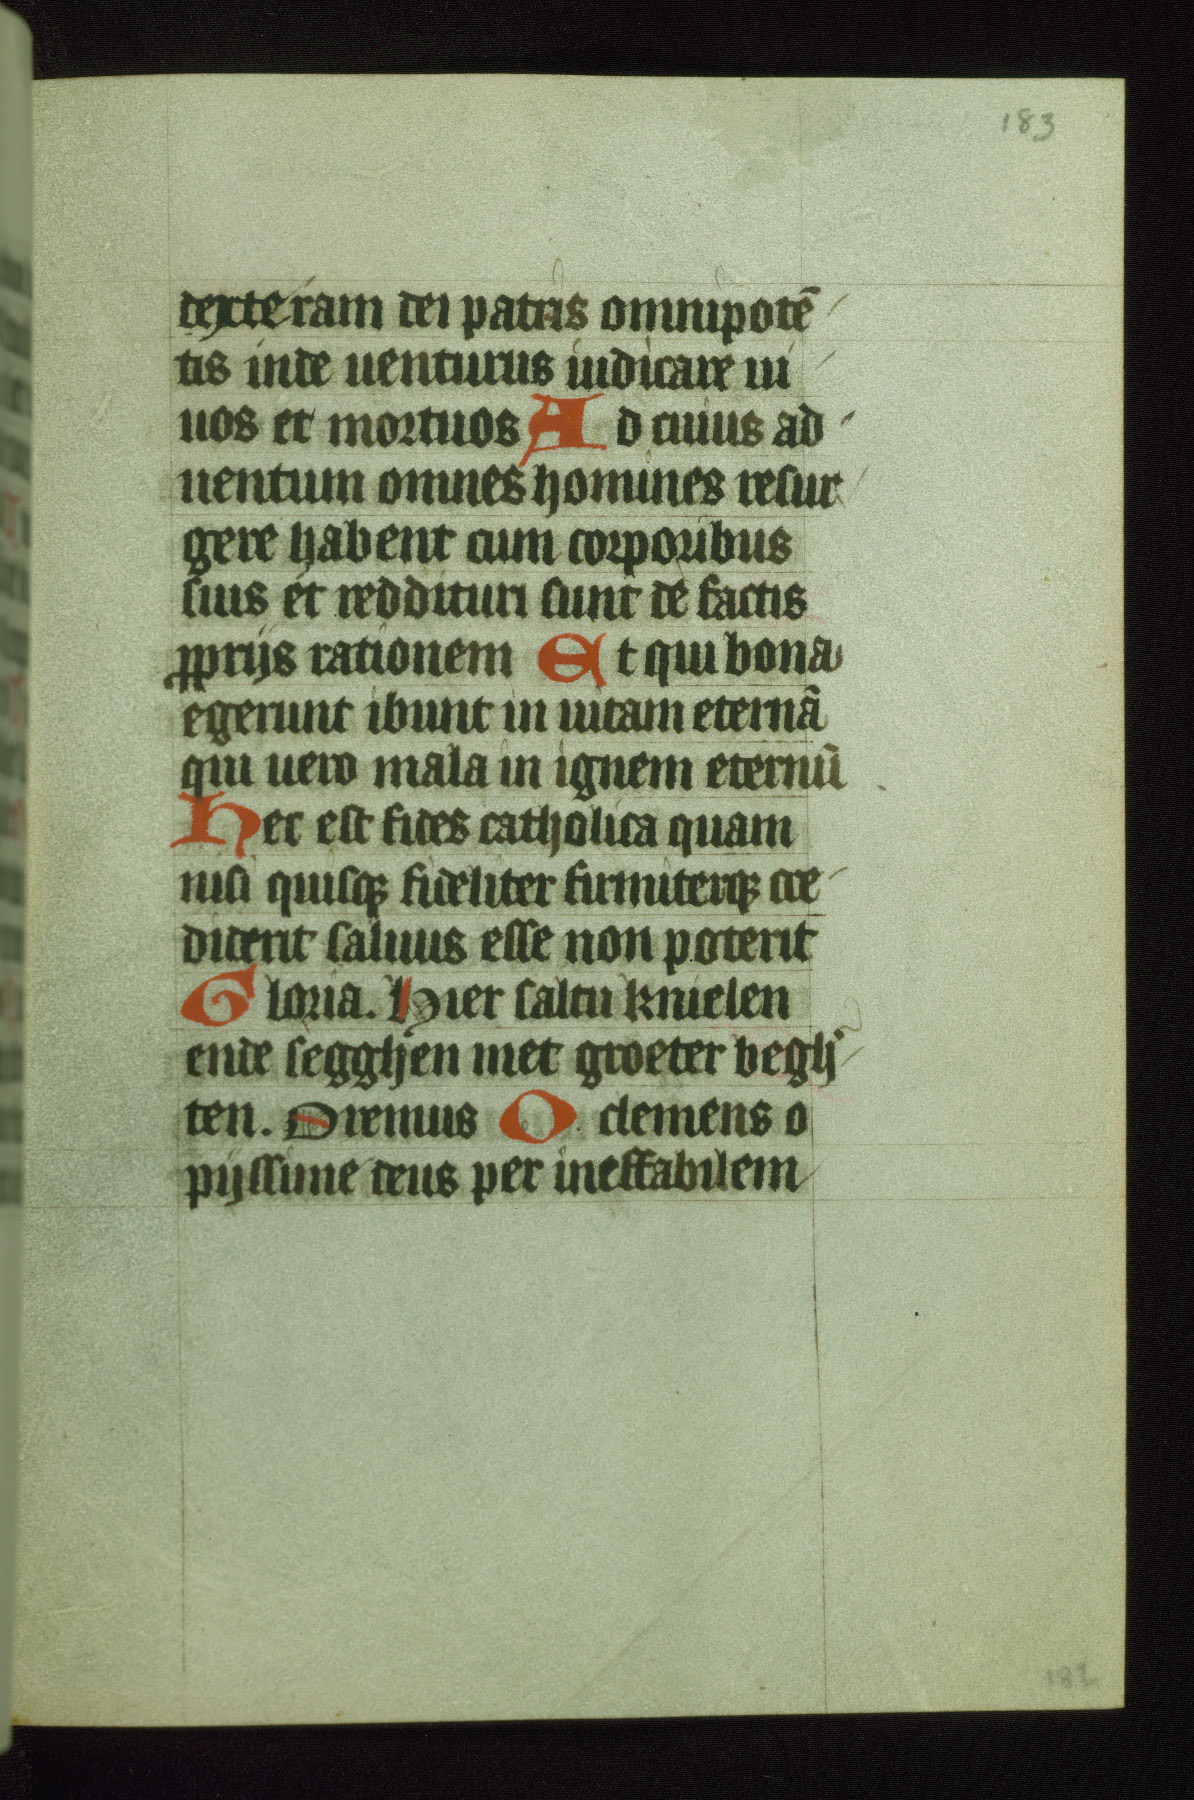 183
dexteram dei patris omnipotē
tis inde uenturus iudicare ui
uos et mortuos Ad cuius ad
uentum omnes homines resur
gere habent cum corporibus
suis et reddituri sunt de factis
ꝓprijs rationem Et qui bona
egerunt ibunt in uitam eternā
qui uero mala in ignem eternū
Hec est fides catholica quam
nisi quisqꝫ fideliter firmiterqꝫ cre
diderit saluus esse non poterit
Gloria. Hier saltu knielen
ende segghen met groeter begh'
ten. Oremus O clemens o
pijssime deus per ineffabilem
182